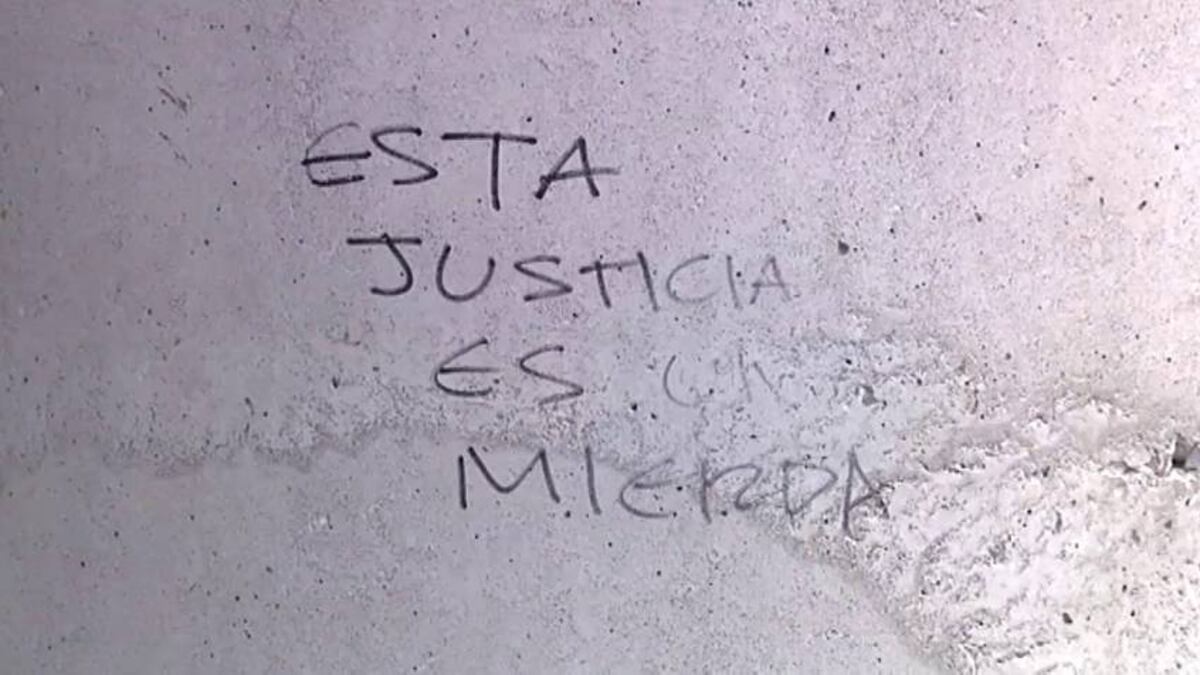 ESTA
JUSTICIA
ES UNA
MIERDA